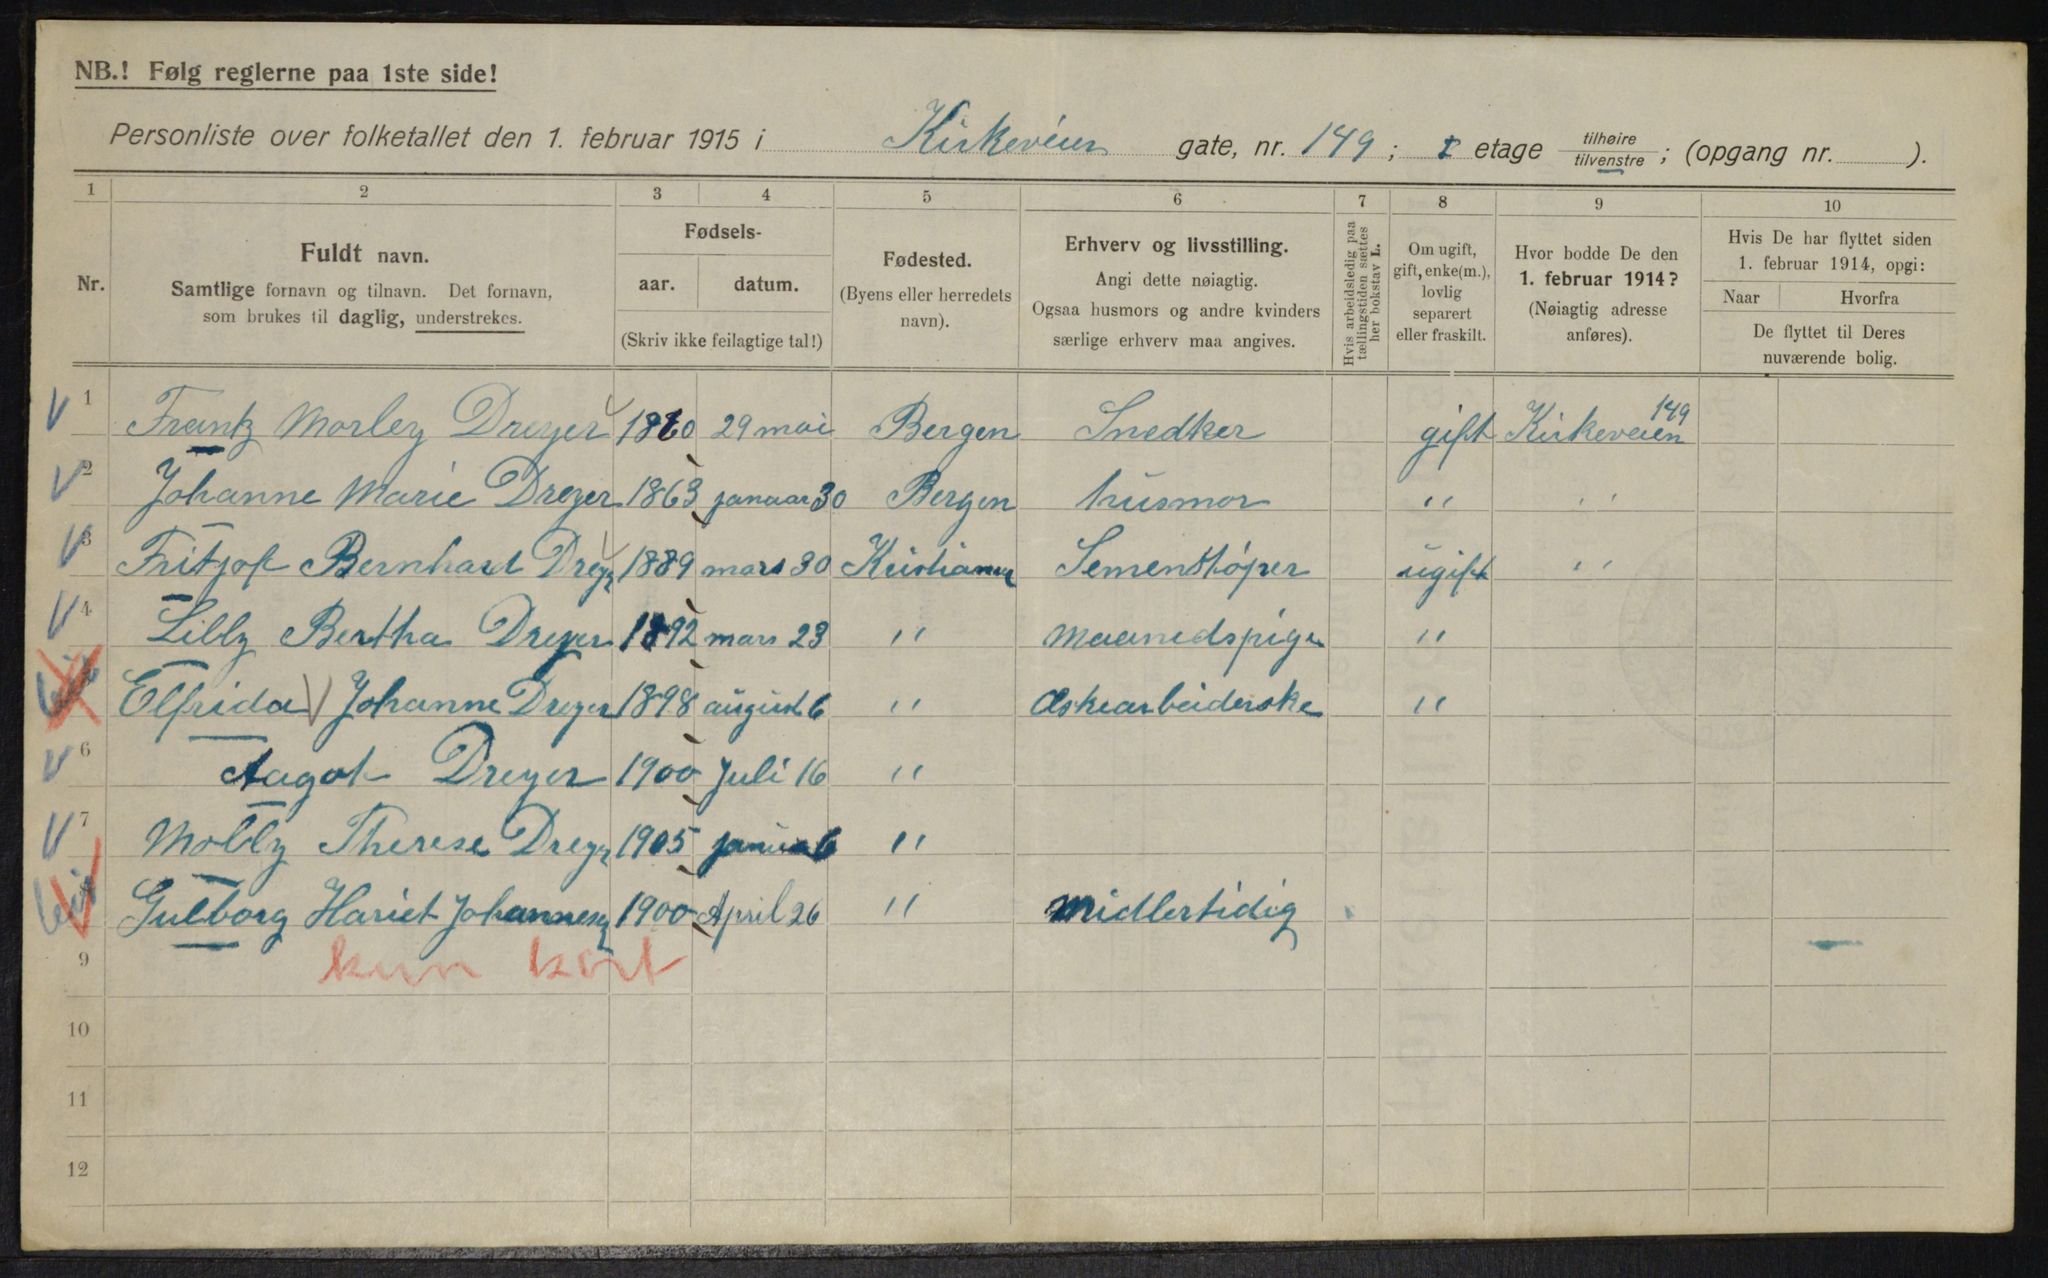 NB.! Følg reglerne paa 1ste side!
Personliste over folketallet den 1. februar 1915 i Kirkeveien gate, nr. 149; I etage tilhøire tilvenstre; (opgang nr. ).
1 2 3 4 5 6 7 8 9 10
Nr.
Fuldt navn.
Samtlige fornavn og tilnavn. Det fornavn,
som brukes til daglig, understrekes.
Fødsels-
aar. datum.
(Skriv ikke feilagtige tal!)
Fødested.
(Byens eller herredets
navn).
Erhverv og livsstilling.
Angi dette nøiagtig.
Ogsaa husmors og andre kvinders
særlige erhverv maa angives.
Hvis arbeidsledig paa
tællingstiden sættes
her bokstav L.
Om ugift,
gift, enke(m.),
lovlig
separert
eller fraskilt.
Hvor bodde De den
1. februar 1914?
(Nøiagtig adresse
anføres).
Hvis De har flyttet siden
1. februar 1914, opgi:
Naar Hvorfra
De flyttet til Deres
nuværende bolig.
1 Frantz Morley Dreyer 1860 29 mai Bergen Snedker gift Kirkeveien 149
2 Johanne Marie Dreyer 1863 januar 30 Bergen husmor " "
3 Fritjof Bernhard Dreyer 1889 mars 30 Kristiania Sementstøper ugift "
4 Lilly Bertha Dreyer 1892 mars 23 " Maanedspige "
Elfrida Johanne Dreyer 1898 august 6 " Æskearbeiderske "
6 Aagot Dreyer 1900 Juli 16 "
7 Molly Therese Dreyer 1905 januar 6 "
Gulborg Hariet Johannesen 1900 April 26 " Midlertidig
9 kun kort
10
11
12